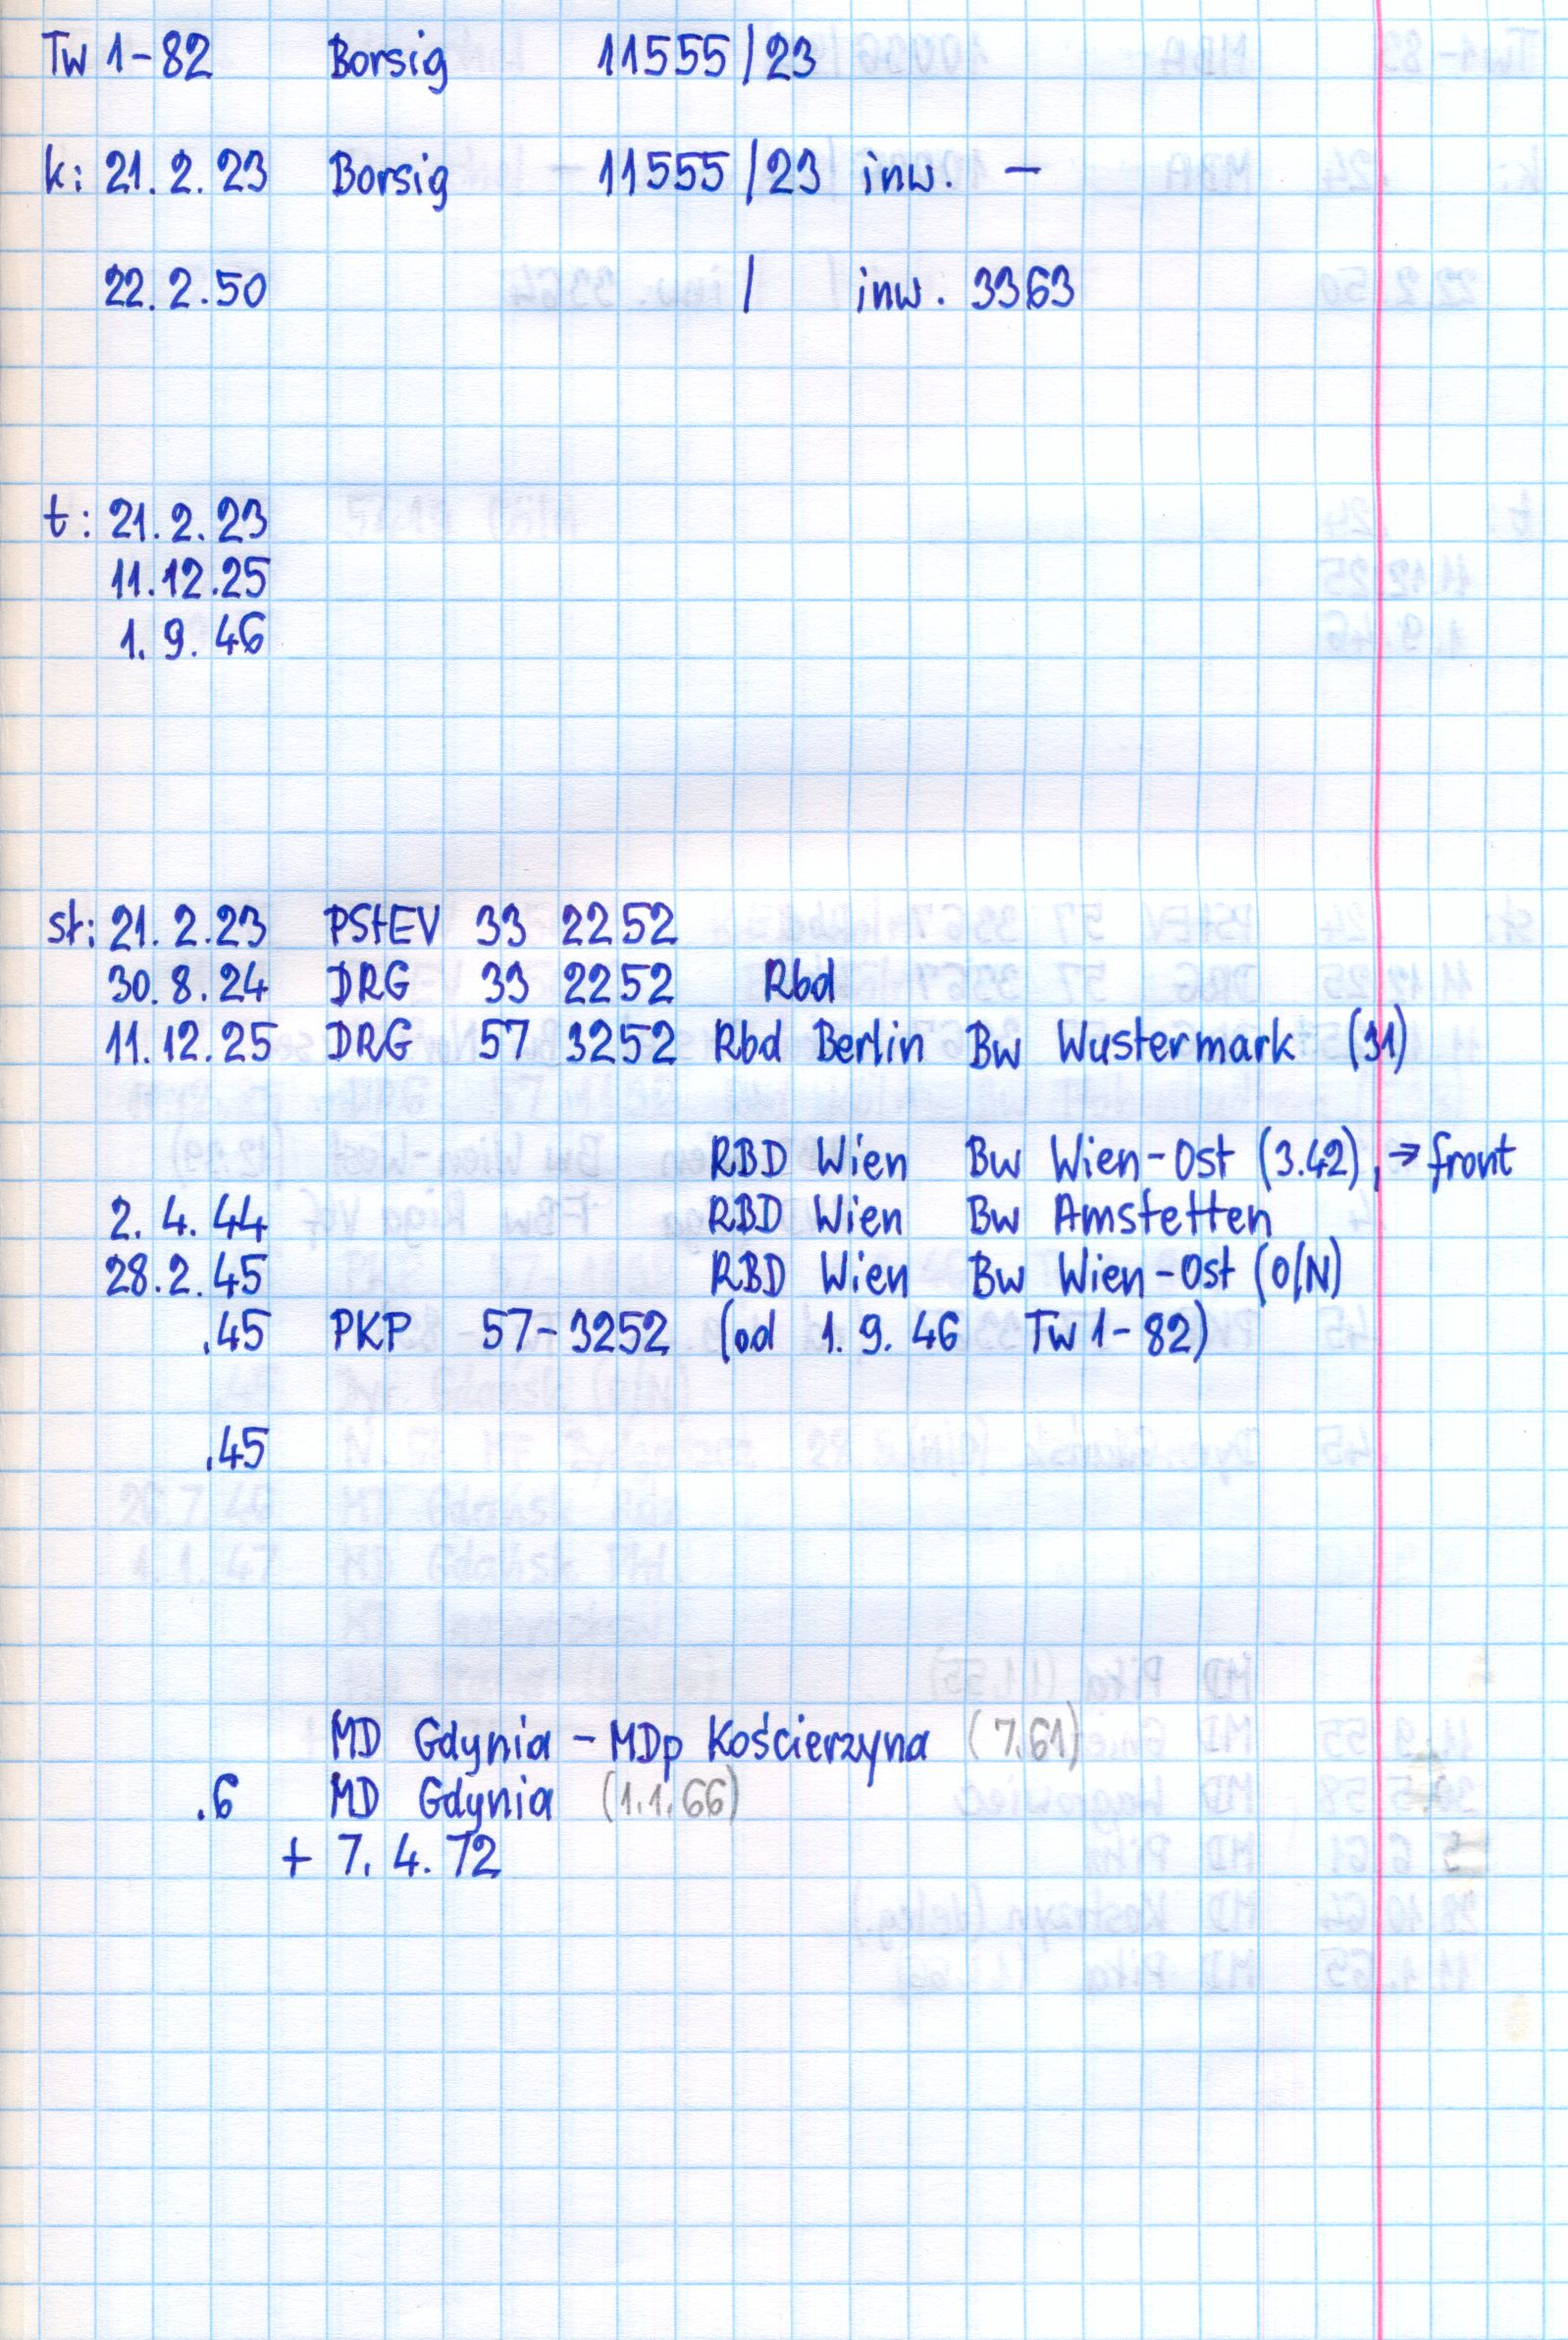 Tw 1-82 Borsig 11555/23
k: 21.2.23 Borsig 11555/23 inw. -
22.2.50 / inw. 3363
t: 21.2.23
11.12.25
1.9.46
st: 21.2.23 PStEV 33 2252
30.8.24 DRG 33 2252 Rbd
11.12.25 DRG 57 3252 Rbd Berlin Bw Wustermark (31)
RBD Wien Bw Wien-Ost (3.42), → front
2.4.44 RBD Wien Bw Amstetten
28.2.45 RBD Wien Bw Wien-Ost (O/N)
.45 PKP 57-3252 (od 1.9.46 Tw 1-82)
.45
MD Gdynia - MDp Kościerzyna (7.61)
.6 MD Gdynia (1.1.66)
+ 7.4.72